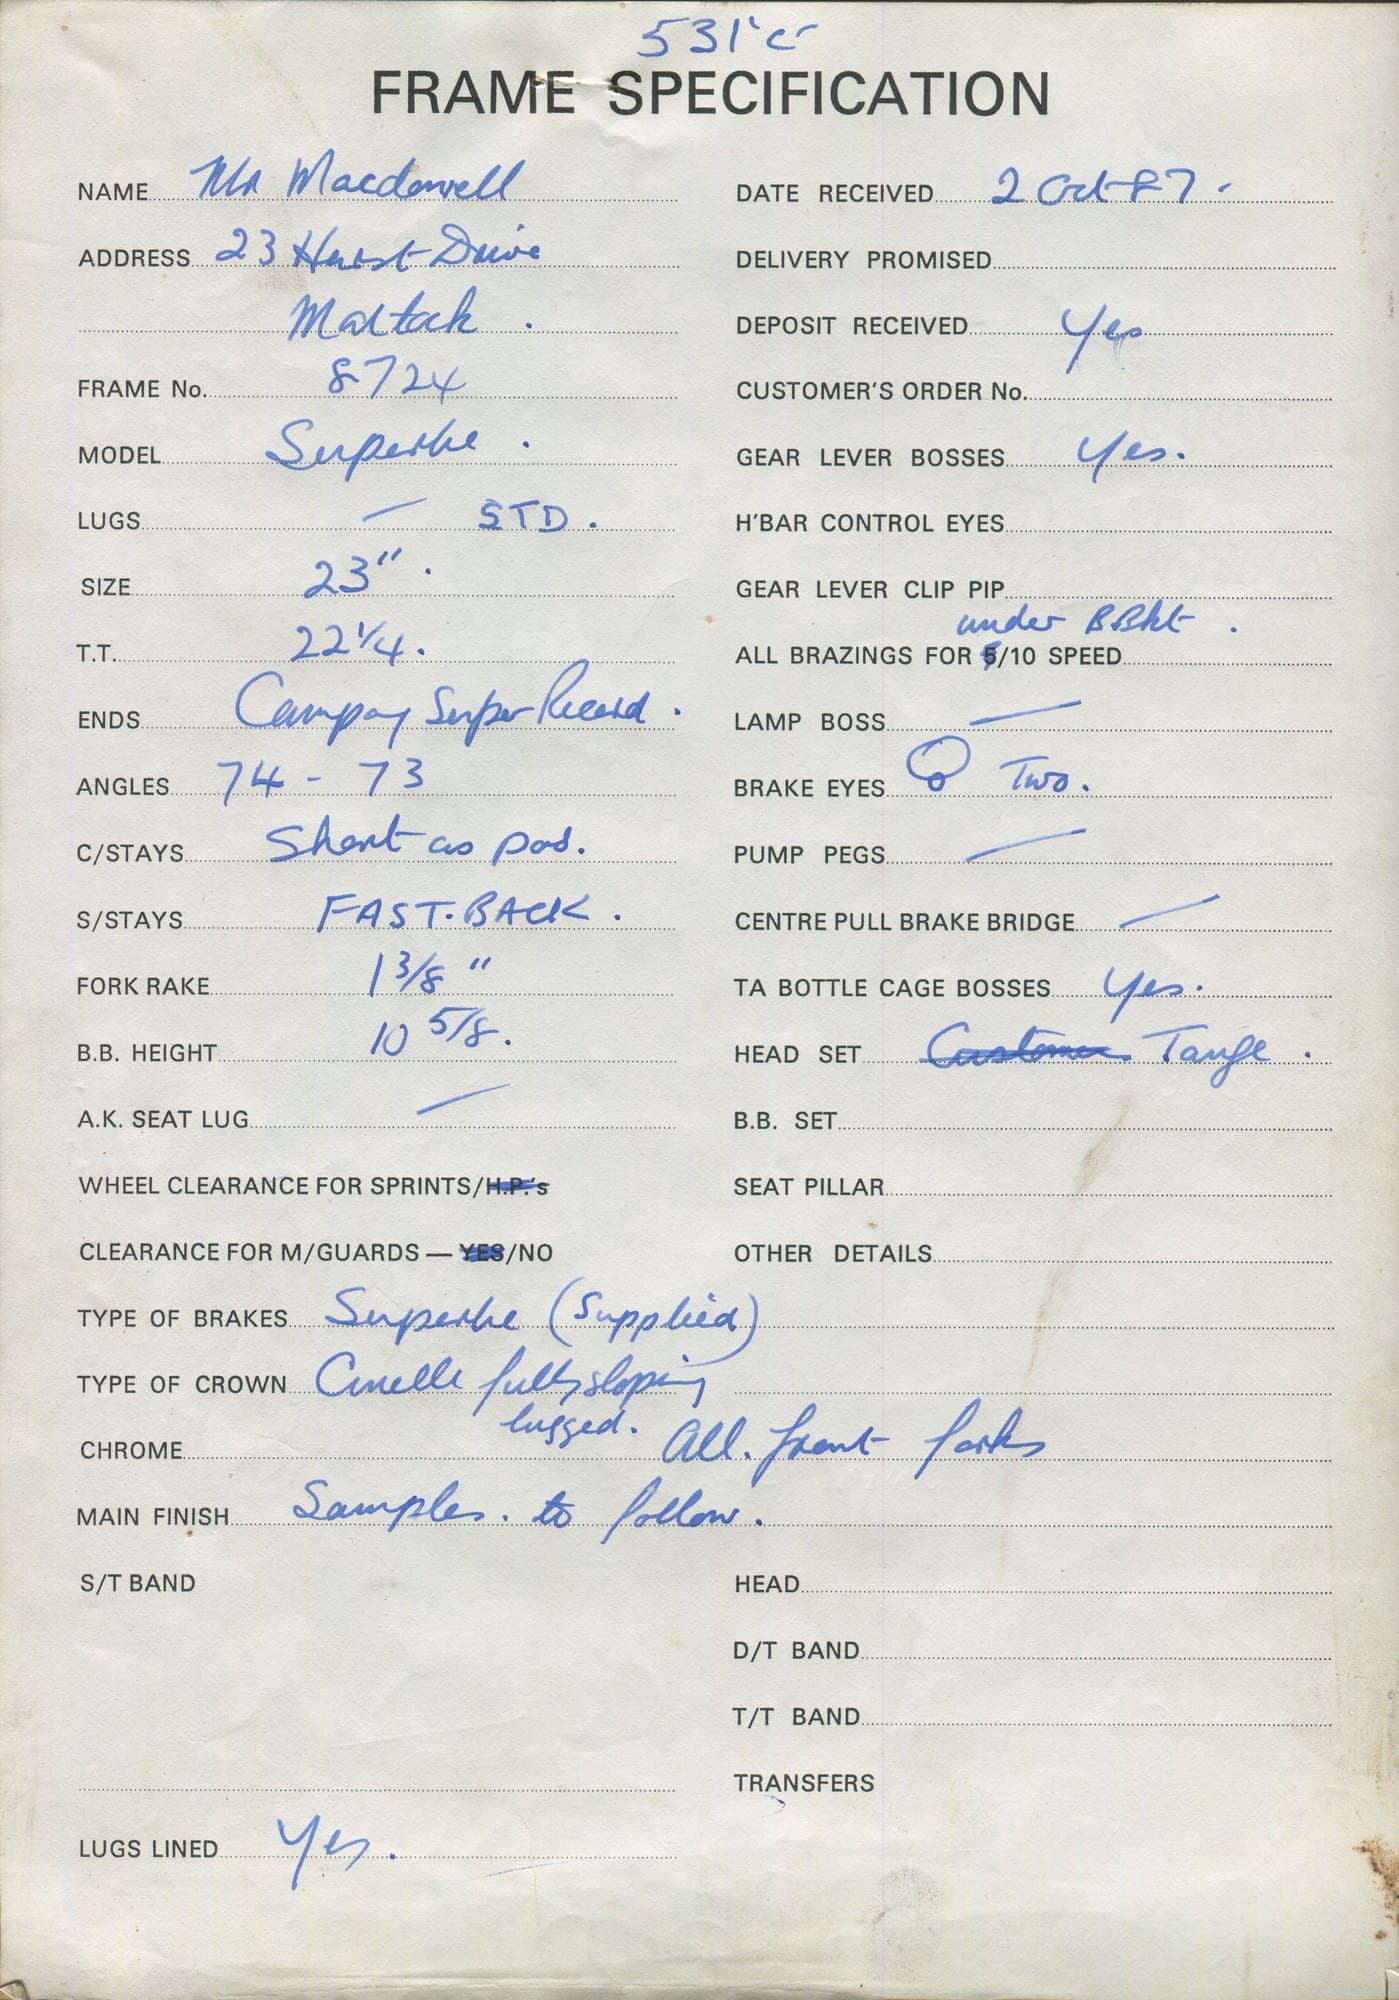 531'c
FRAME SPECIFICATION
NAME Mr Macdowell
ADDRESS 23 Hurst Drive
Matlock .
FRAME No. 8724
MODEL Superbe .
LUGS — STD .
SIZE 23" .
T.T. 22 1/4 .
ENDS Campag Super Record .
ANGLES 74 - 73
C/STAYS Short as pos.
S/STAYS FAST. BACK .
FORK RAKE 1 3/8 "
B.B. HEIGHT 10 5/8 .
A.K. SEAT LUG —
WHEEL CLEARANCE FOR SPRINTS/H.P.'s
CLEARANCE FOR M/GUARDS — YES/NO
DATE RECEIVED 2 Oct 87 .
DELIVERY PROMISED
DEPOSIT RECEIVED Yes
CUSTOMER'S ORDER No.
GEAR LEVER BOSSES Yes.
H'BAR CONTROL EYES
GEAR LEVER CLIP PIP
under BBkt .
ALL BRAZINGS FOR 5/10 SPEED
LAMP BOSS —
BRAKE EYES Two.
PUMP PEGS —
CENTRE PULL BRAKE BRIDGE —
TA BOTTLE CAGE BOSSES Yes.
HEAD SET Customer Tange .
B.B. SET
SEAT PILLAR
OTHER DETAILS
TYPE OF BRAKES Superbe (Supplied)
TYPE OF CROWN Cinelli fully sloping
lugged.
CHROME All. front forks
MAIN FINISH Samples. to follow.
S/T BAND
HEAD
D/T BAND
T/T BAND
TRANSFERS
LUGS LINED Yes.